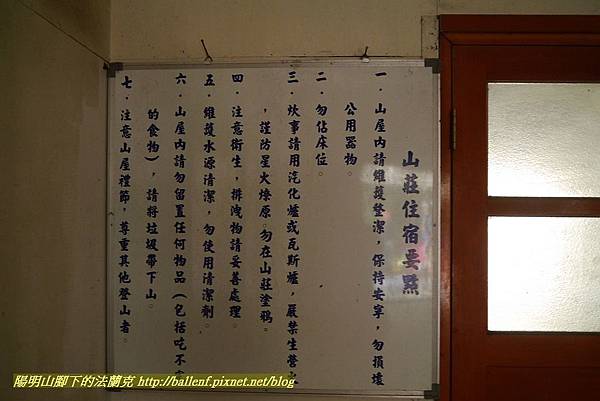 山莊住宿要點
一．山屋內請維護整潔，保持安寧，勿損壞
公用器物。
二．勿佔床位。
三．炊事請用汽化爐或瓦斯爐，嚴禁生營火
，謹防星火燎原。勿在山莊塗鴉。
四．注意衛生，排洩物請妥善處理。
五．維護水源清潔，勿使用清潔劑。
六．山屋內請勿留置任何物品（包括吃不
的食物），請將垃圾帶下山。
七．注意山屋禮節，尊重其他登山者。
陽明山腳下的法蘭克 http://ballenf.pixnet.net/blog